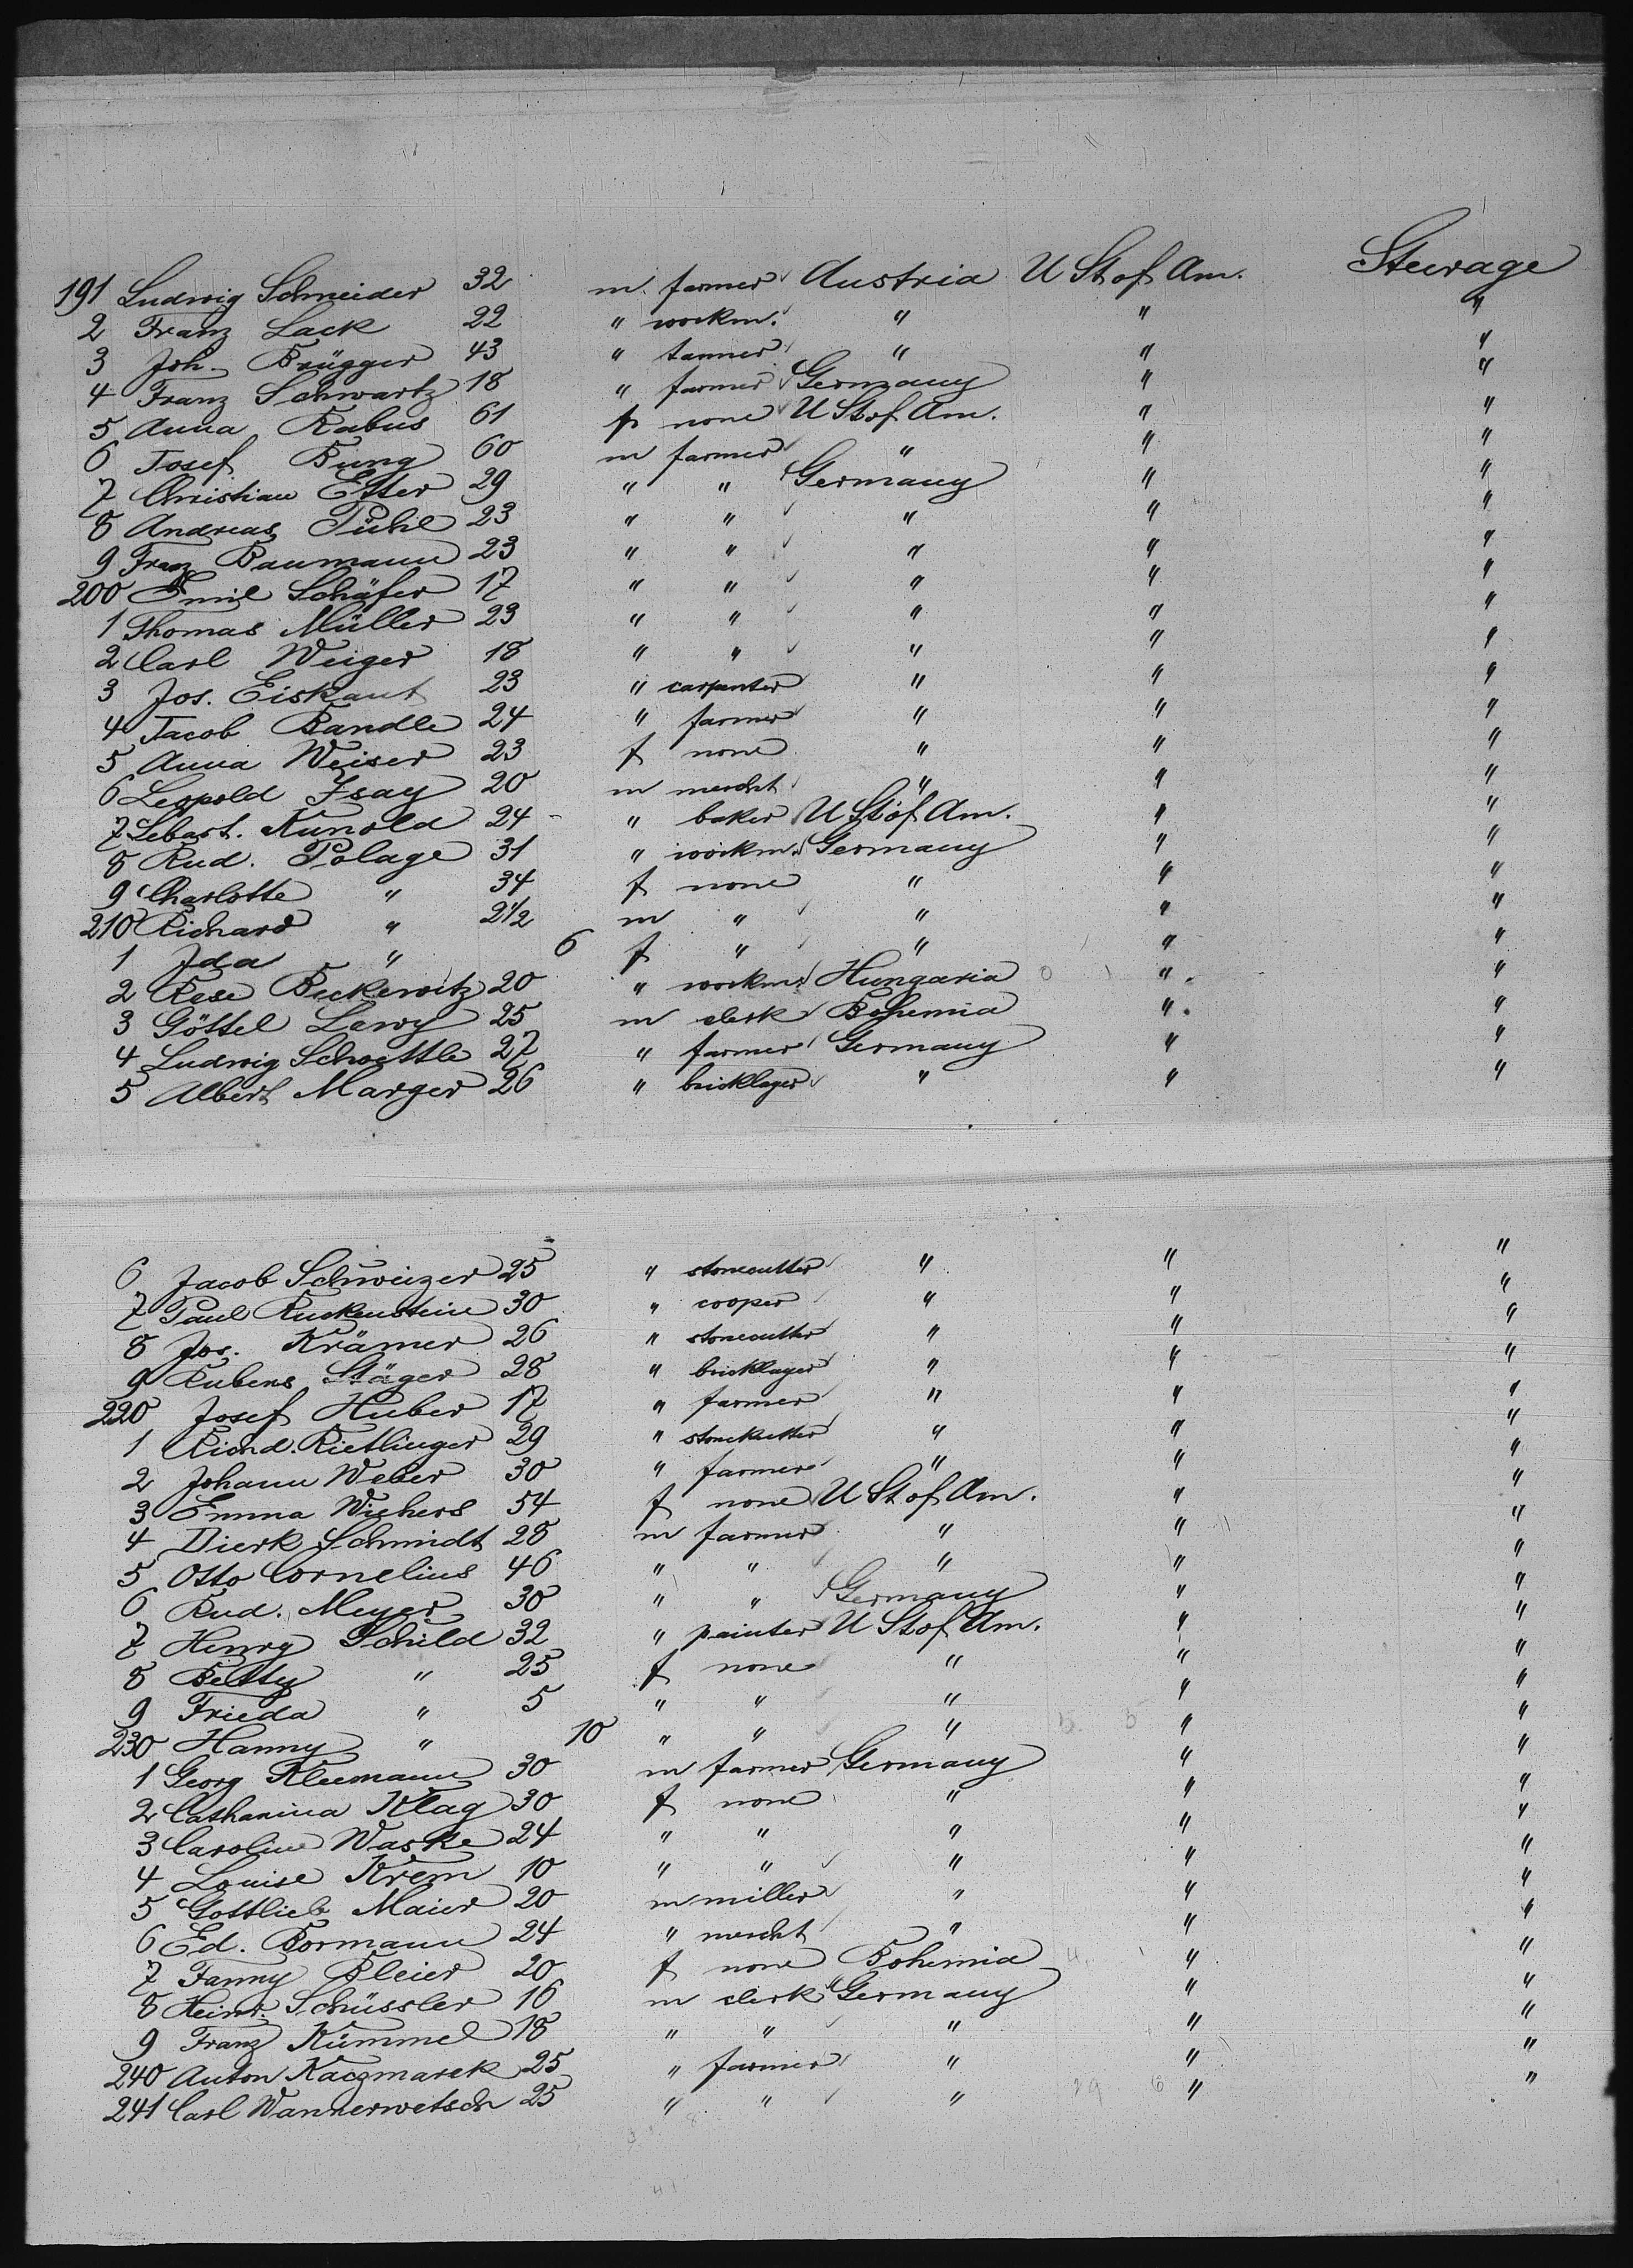 191 Ludwig Schneider 32 m farmer Austria U St of Am. Steerage
2 Franz Lack 22 " workm. " " "
3 Joh. Brügger 43 " tanner " " "
4 Franz Schwartz 18 " farmer Germany " "
5 Anna Rabus 61 f none U St of Am. " "
6 Josef Bung 60 m farmer " " "
7 Christian Etter 29 " " Germany " "
8 Andreas Pühl 23 " " " " "
9 Franz Baumann 23 " " " " "
200 Emil Schäfer 17 " " " " "
1 Thomas Müller 23 " " " " "
2 Carl Weiger 18 " " " " "
3 Jos. Eiskant 23 " carpenter " " "
4 Jacob Bandle 24 " farmer " " "
5 Anna Weiser 23 f none " " "
6 Leopold Isay 20 m mercht " " "
7 Sebast. Kunold 24 " baker U St of Am. " "
8 Rud. Polage 31 " workm. Germany " "
9 Charlotte " 34 f none " " "
210 Richard " 2 1/2 m " " " "
1 Ida " 6 f " " " "
2 Rese Beckewitz 20 " workm. Hungaria " "
3 Göttel Lewy 25 m clerk Bohemia " "
4 Ludwig Schoettle 27 " farmer Germany " "
5 Albert Marger 26 " bricklager " " "
6 Jacob Schweizer 25 " stonecutter " " "
7 Paul Ruckenstein 30 " cooper " " "
8 Jos. Krämer 26 " stonecutter " " "
9 Rubens Stäger 28 " bricklager " " "
220 Josef Huber 17 " farmer " " "
1 Richd. Rietlinger 29 " stonekutter " " "
2 Johann Weber 30 " farmer " " "
3 Emma Wichers 54 f none U St of Am. " "
4 Dierk Schmidt 28 m farmer " " "
5 Otto Cornelius 46 " " " " "
6 Rud. Meyer 30 " " Germany " "
7 Henry Schild 32 " painter U St of Am. " "
8 Betty " 25 f none " " "
9 Frieda " 5 " " " " "
230 Hanny " 10 " " " " "
1 Georg Kleemann 30 m farmer Germany " "
2 Catharina Klag 30 f none " " "
3 Caroline Waske 24 " " " " "
4 Louise Krem 10 " " " " "
5 Gottlieb Maier 20 m miller " " "
6 Ed. Bormann 24 " mercht " " "
7 Fanny Bleier 20 f none Bohemia " "
8 Heinr. Schüssler 16 m clerk Germany " "
9 Franz Kümmel 18 " " " " "
240 Anton Kaczmarek 25 " farmer " " "
241 Carl Wannerwetsch 25 " " " " "